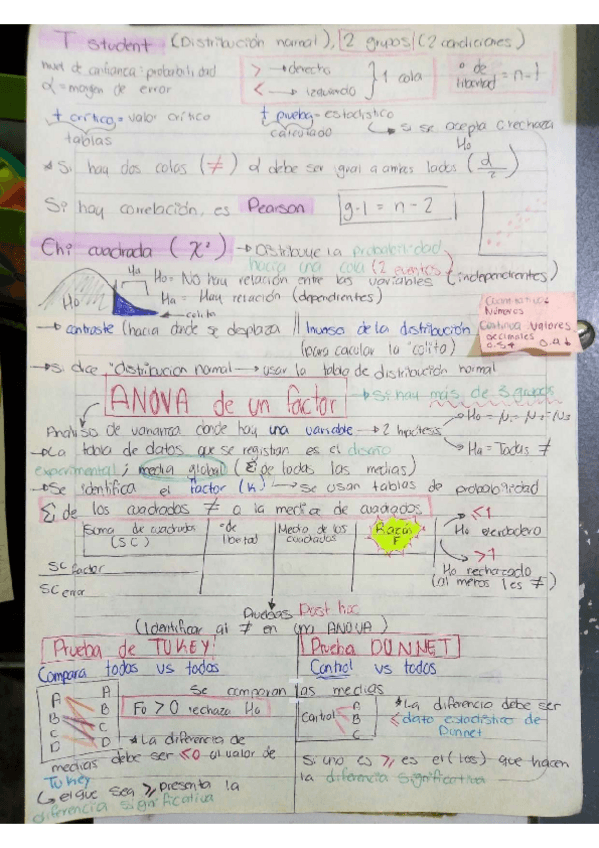 T student (Distribución normal), 2 grupos (2 condiciones)
nivel de confianza: probabilidad
α = margen de error
> → derecho
< → izquierdo
} 1 cola
° de libertad = n-1
t crítico = valor crítico
tablas
t prueba = estadístico
calculado
→ si se acepta o rechaza Ho
* Si hay dos colas (≠) α debe ser igual a ambos lados (d/2)
Si hay correlación, es Pearson
g·l = n - 2
Chi cuadrada (χ²) → Distribuye la probabilidad
hacia una cola (2 eventos)
Ha
Ho
Ho = No hay relación entre las variables (independientes)
Ha = Hay relación (dependientes)
colita
Cuantitativa:
Números
Continua valores
decimales
→ contraste (hacia donde se desplaza || Inverso de la distribución
(para cacular la "colita")
→ Si dice "distribucion normal → usar la tabla de distribución normal
ANOVA de un factor
→ Si hay más de 3 grupos
Analisis de varianza donde hay una variable → 2 hipótesis
Ho = μ1 = μ2 = μ3
Ha = Todas ≠
→ La tabla de datos que se registran es el diseño
experimental; media global (Σ de todas las medias)
→ Se identifica el factor (K) → Se usan tablas de probabilidad
Σ de los cuadrados ≠ a la media de cuadrados
Suma de cuadrados (SC)
° de libertad
Media de los cuadrados
Razón F
<1
Ho verdadero
>1
Ho rechazado
(al menos 1 es ≠)
SC factor
SC error
Pruebas Post hoc
(Identificar al ≠ en un ANOVA)
Prueba de TUKEY:
Compara todos vs todos
A A
B B
C C
D D
Se comparan las medias
Fo > 0 rechaza Ho
* La diferencia de
medias debe ser ≤0 al valor de
Tukey
↳ el que sea ≥ presenta la
diferencia significativa
Prueba DUNNET
Control vs todos
Control
A
B
C
* La diferencia debe ser
≤ dato estadístico de
Dunnet
Si uno es ≥, es el (los) que hacen
la diferencia significativa